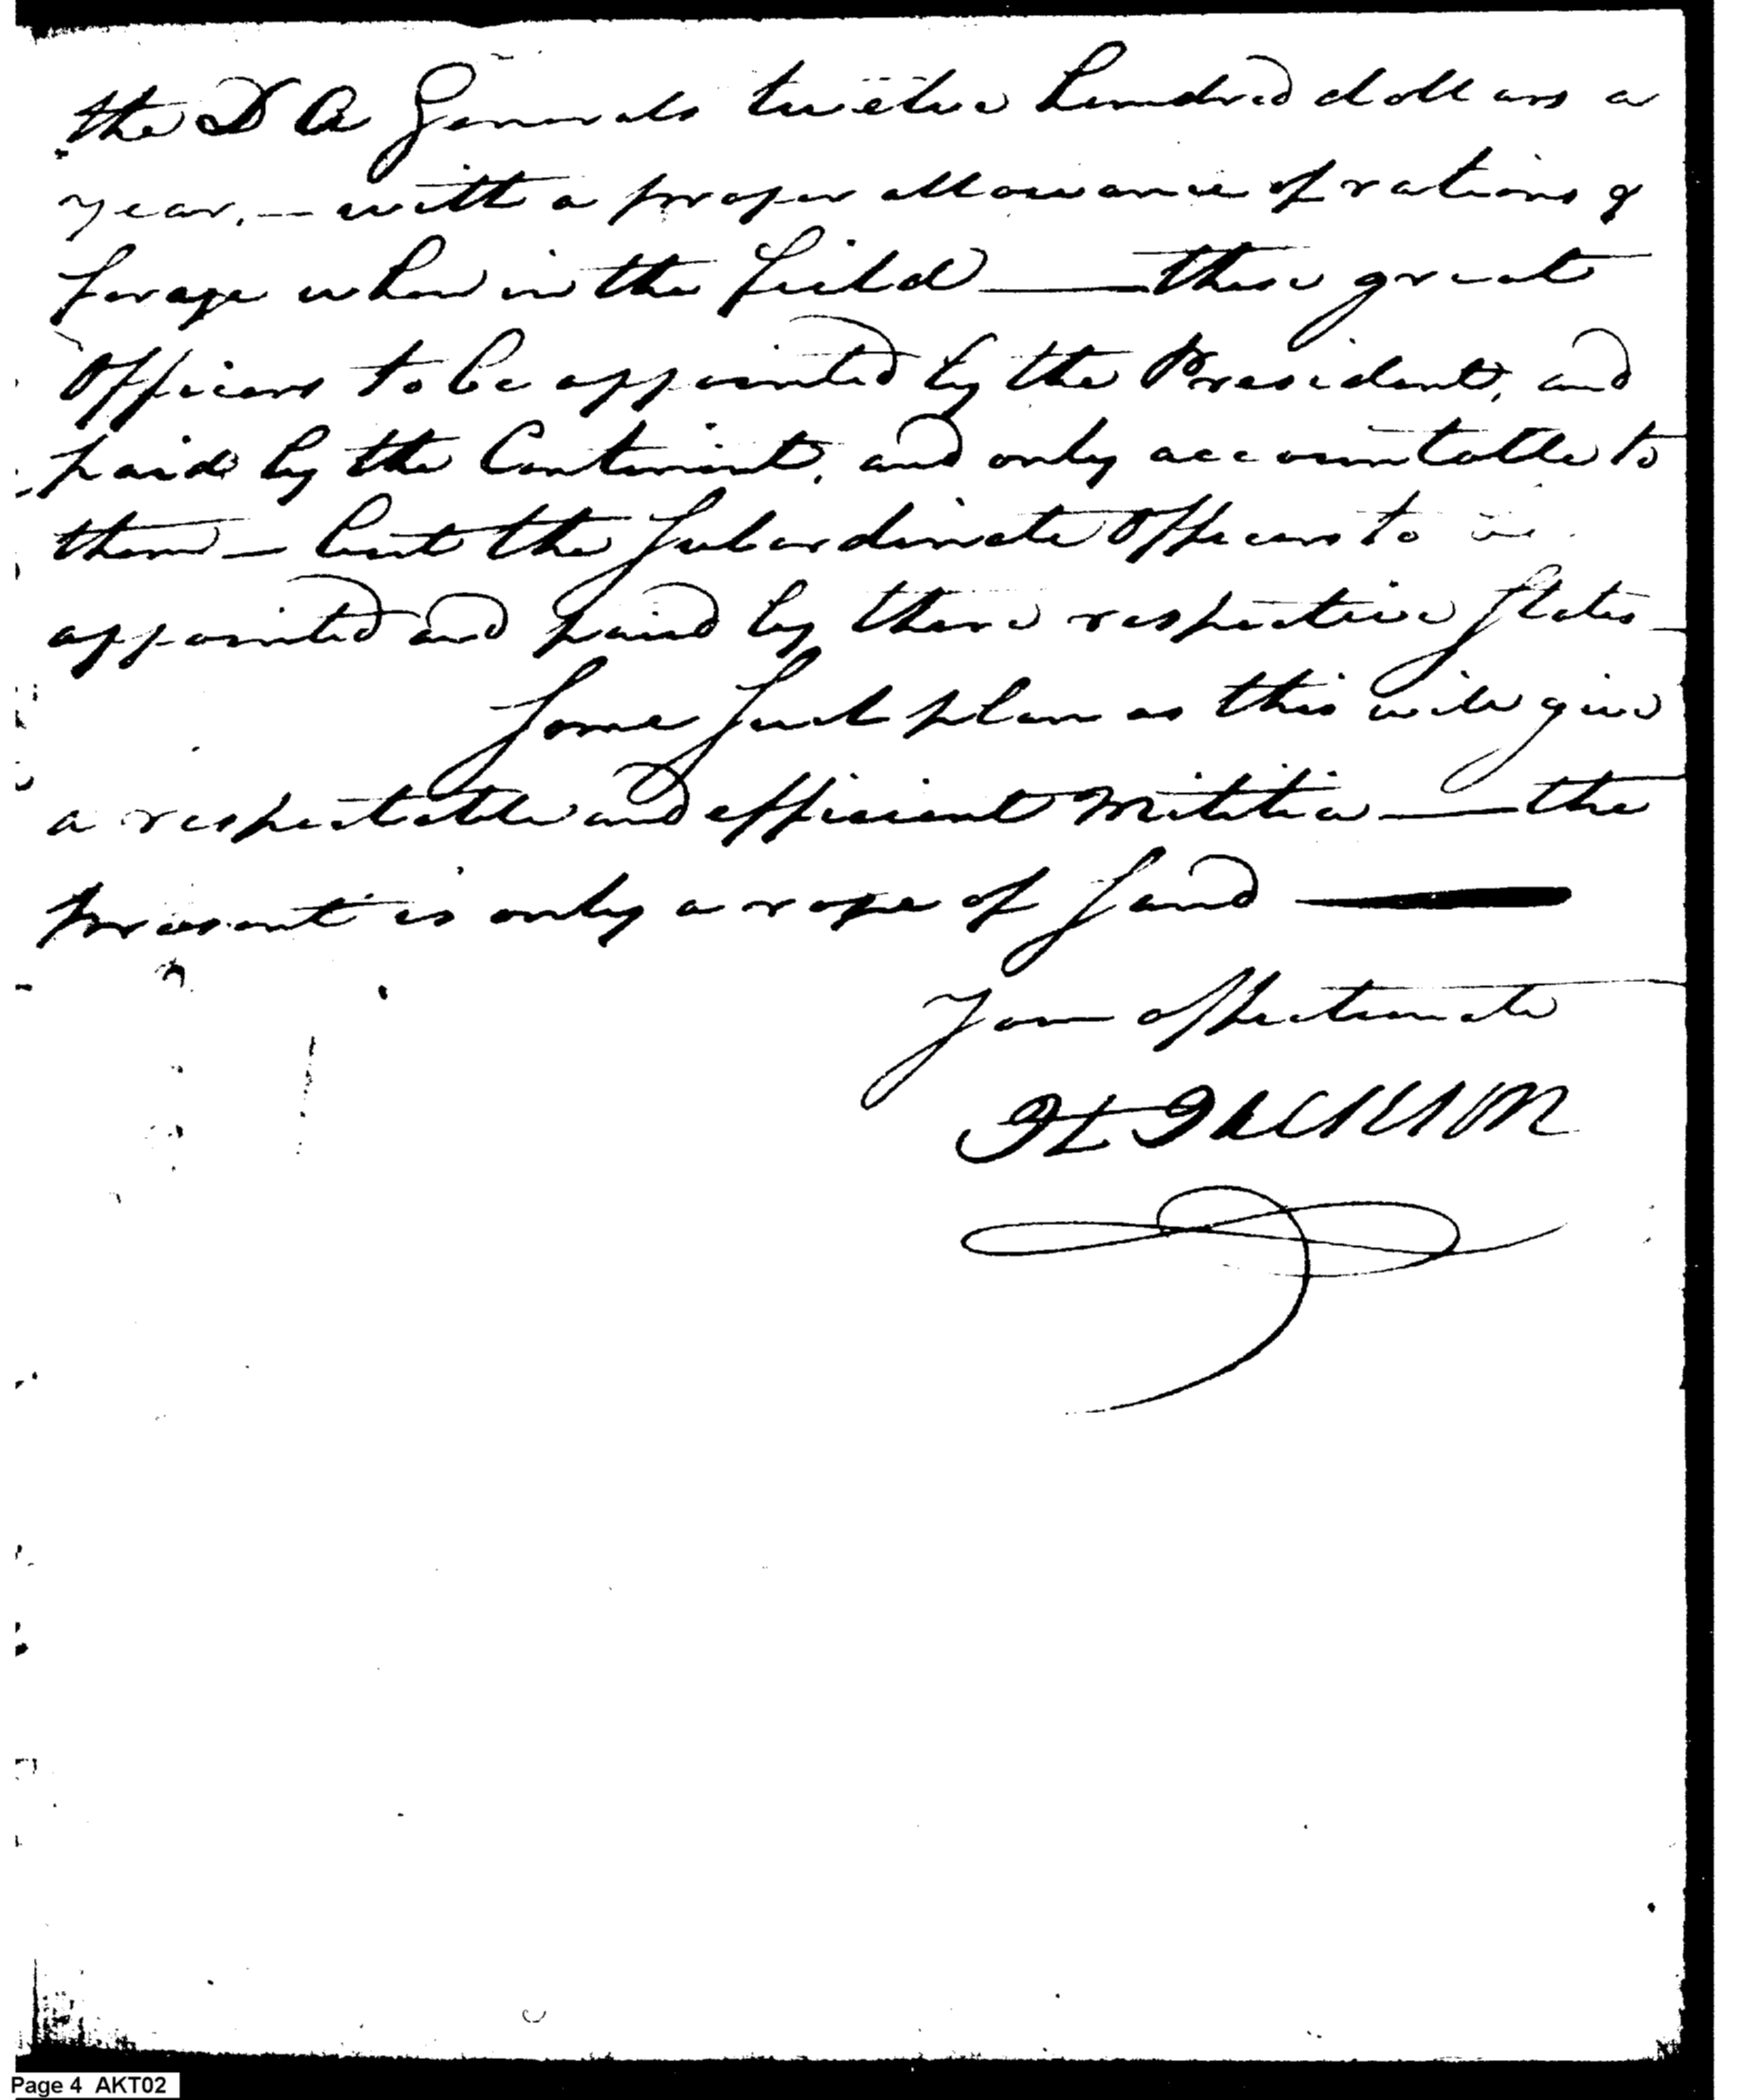 the D A Generals twelve hundred dollars a
year, — with a proper allowance of rations &
forage when in the field — these great
Officers to be appointed by the President, and
paid by the Continent, and only accountable to
them — but the Subordinate Officers to be
appointed and paid by there respective States —
Some Such plan as this will give
a respectable and efficient Militia — the
present is only a rope of Sand —
Your affectionate
H JACKSON
Page 4 AKT02